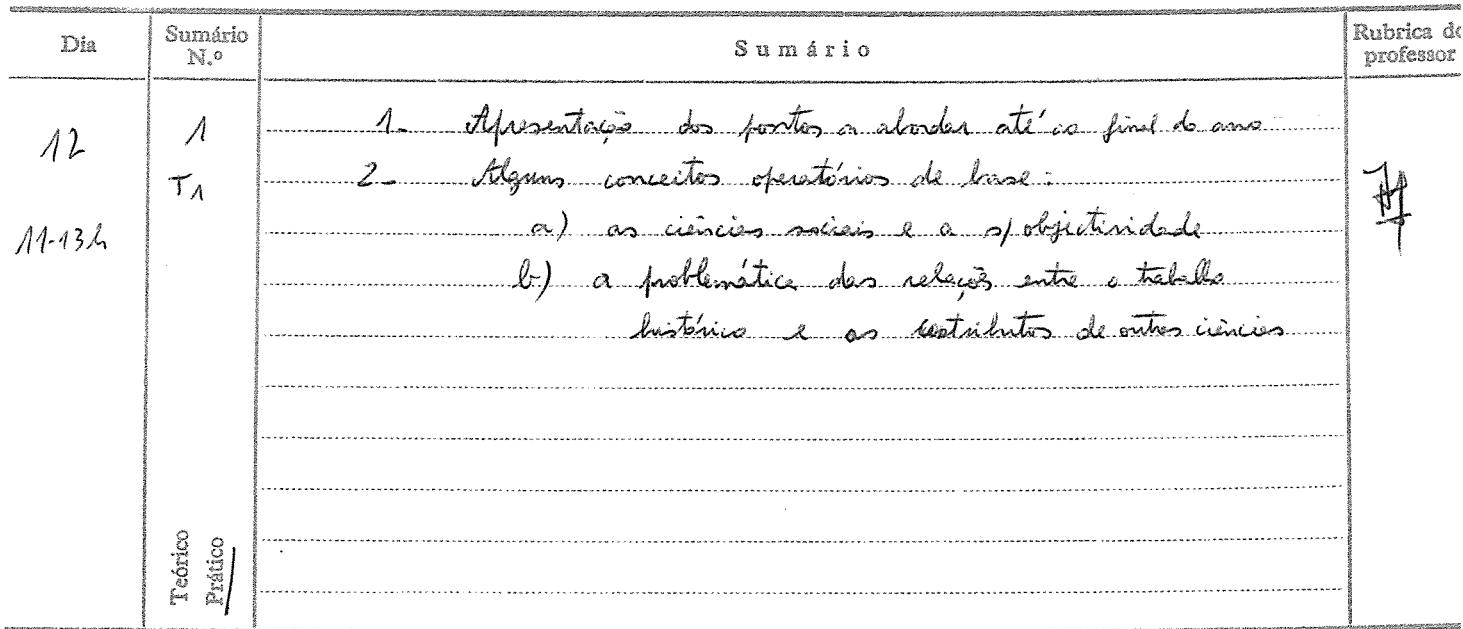 Dia
Sumário N.º
Sumário
Rubrica do professor
12
1
1- Apresentação dos pontos a abordar até ao final do ano
T1
2- Alguns conceitos operatórios de base:
11-13h
a) as ciências sociais e a s/ objectividade
b-) a problemática das relações entre o trabalho
histórico e os contributos de outras ciências
Teórico
Prático